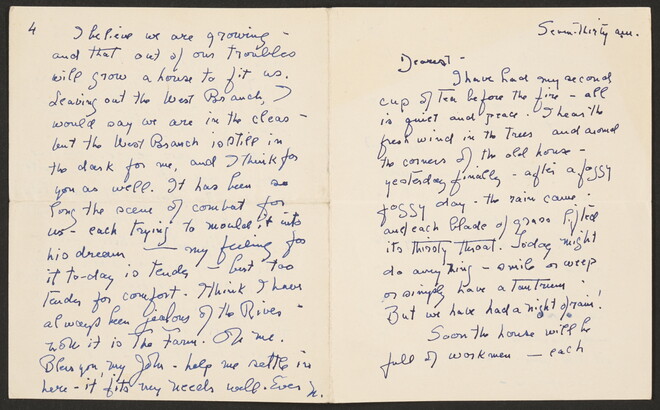 4
I believe we are growing -
and that out of our troubles
will grow a house to fit us.
Leaving out the West Branch, I
would say we are in the clear -
but the West Branch is still in
the dark for me, and I think for
you as well. It has been so
long the scene of combat for
us - each trying to mould it into
his dream — my feeling for
it to-day is tender - but too
tender for comfort. I think I have
always been jealous of the River -
now it is the Farm. Oh me.
Bless you, my John - help me settle in
here - it fits my needs well. Ever
Seven-thirty a.m.
Dearest -
I have had my second
cup of Tea before the fire - all
is quiet and peace. I hear the
fresh wind in the Trees and around
the corners of the old house -
yesterday finally - after a foggy
foggy day - the rain came
and each blade of grass lifted
its thirsty throat. Today might
do anything - smile or weep
or simply have a Tantrum!
But we have had a night of rain!
Soon the house will be
full of workmen — each